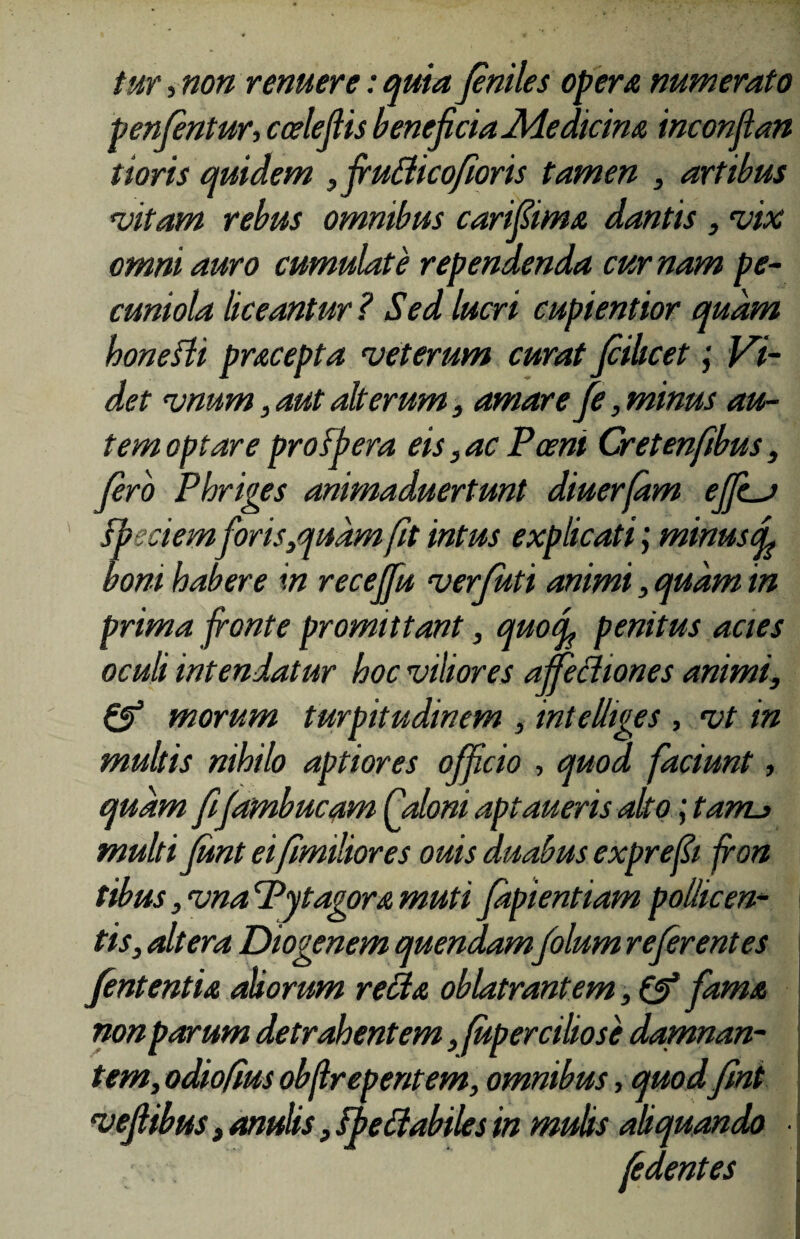 tur, non renuere: quia ſeniles operæ numerato
penſentur, cœleſtis beneficia Medicinæ inconſtan
tioris quidem, fructicoſioris tamen, artibus
vitam rebus omnibus cariſsimæ dantis, vix
omni auro cumulatè rependenda cur nam pe-
cuniola liceantur? Sed lucri cupientior quàm
honeſti præcepta veterum curat ſcilicet; Vi-
det vnum, aut alterum, amare ſe, minus au-
tem optare proſpera eis, ac Pœni Cretenſibus,
ſerò Phriges animaduertunt diuerſam eſſe
ſpeciem foris, quàm ſit intus explicati; minusq́;
boni habere in receſſu verſuti animi, quàm in
prima fronte promittant, quoq́; penitus acies
oculi intendatur hoc viliores affectiones animi,
& morum turpitudinem, intelliges, vt in
multis nihilo aptiores officio, quod faciunt,
quàm ſi ſambucam Caloni aptaueris alto; tam
multi ſunt ei ſimiliores ouis duabus expreſsi fron
tibus, vna Pytagoræ muti ſapientiam pollicen-
tis, altera Diogenem quendam ſolum referentes
ſententiæ aliorum rectæ oblatrantem, & famæ
non parum detrahentem, ſuperciliosè damnan-
tem, odioſius obſtrepentem, omnibus, quod ſint
veſtibus, anulis, ſpectabiles in mulis aliquando
ſedentes